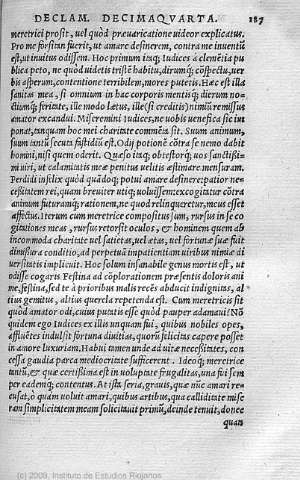 DECLAM. DECIMAQVARTA. 187
meretrici prosit, uel quòd præuaricatione uideor explicatus.
Pro me forsitan fuerit, ut amare desinerem, contra me inuentũ
est, ut inuitus odissem. Hoc primum itaq; Iudices à clemẽtia pu
blica peto, ne quòd uidetis tristẽ habitũ, dirumq; cõspectũ, uer
bis asperum, contentione terribilem, mores putetis. Hæc est illa
sanitas mea, si omnium in hac corporis mentisq́; dierum no-
ctiumq́; feritate, ille modo lætus, ille (si creditis) nimiũ remissus
amator excandui. Miseremini Iudices, ne uobis uenefica sic im
ponat, tanquam hoc mei charitate commẽta sit. Suum animum,
suum tantũ secuta fastidiũ est. Odij potionẽ cõtra se nemo dabit
homini, nisi quem oderit. Quæso itaq́;, obtestorq́;, uos sanctissi-
mi uiri, ut calamitatis meæ penitus uelitis æstimare mensuram.
Perdidi infelix quòd quãdoq́; potui amare desinere: patior ne-
cessitatem rei, quam breuiter utiq; uoluissem: excogitatur cõtra
animum futuramq́; rationem, ne quod relinqueretur, meus esset
affectus. Iterum cum meretrice compositus sum, rursus in se co
gitationes meas, rursus retorsit oculos, & hominem quem ab
incommoda charitate uel satietas, uel ætas, uel fortunæ suæ fuit
dimissura conditio, ad perpetuã impatientiam uiribus nimiæ di
uersitatis implicuit. Hoc solum insanabile genus mortis est, ut
odisse cogaris. Festina ad cõplorationem præsentis doloris ani
me, festina, sed te à prioribus malis recẽs abducit indignitas, al
tius gemitus, altius querela repetenda est. Cum meretricis sit
quòd amator odi, cuius putatis esse quòd pauper adamaui? Nõ
quidem ego Iudices ex illis unquam fui, quibus nobiles opes,
affluentes indulsit fortuna diuitias, quorũ felicitas capere posset
in amore luxuriam. Habui tamen unde ad uitæ necessitates, con
cessa gaudia parca mediocritate sufficerent. Ideoq́; meretrice
unũ, & quæ certissima est in uoluptate frugalitas, una fui sem
per eademq́; contentus. At ista seria, grauis, quæ nũc amari re-
cusat, ò quam uoluit amari, quibus artibus, qua calliditate mise
ram simplicitatem meam solicitauit primũ, deinde tenuit, donec
quan
(c) 2009, Instituto de Estudios Riojanos